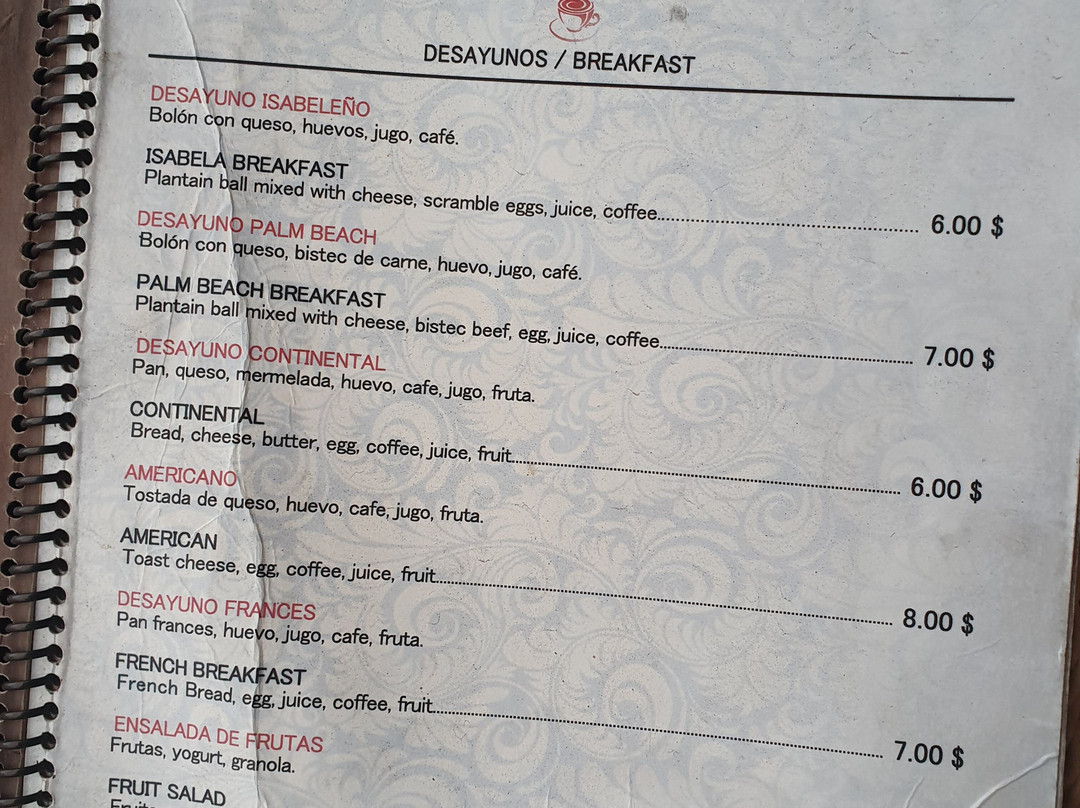 DESAYUNOS / BREAKFAST
DESAYUNO ISABELEÑO
Bolón con queso, huevos, jugo, café.
ISABELA BREAKFAST
Plantain ball mixed with cheese, scramble eggs, juice, coffee.......................................................... 6.00 $
DESAYUNO PALM BEACH
Bolón con queso, bistec de carne, huevo, jugo, café.
PALM BEACH BREAKFAST
Plantain ball mixed with cheese, bistec beef, egg, juice, coffee.......................................................... 7.00 $
DESAYUNO CONTINENTAL
Pan, queso, mermelada, huevo, cafe, jugo, fruta.
CONTINENTAL
Bread, cheese, butter, egg, coffee, juice, fruit.......................................................... 6.00 $
AMERICANO
Tostada de queso, huevo, cafe, jugo, fruta.
AMERICAN
Toast cheese, egg, coffee, juice, fruit.......................................................... 8.00 $
DESAYUNO FRANCES
Pan frances, huevo, jugo, cafe, fruta.
FRENCH BREAKFAST
French Bread, egg, juice, coffee, fruit.......................................................... 7.00 $
ENSALADA DE FRUTAS
Frutas, yogurt, granola.
FRUIT SALAD